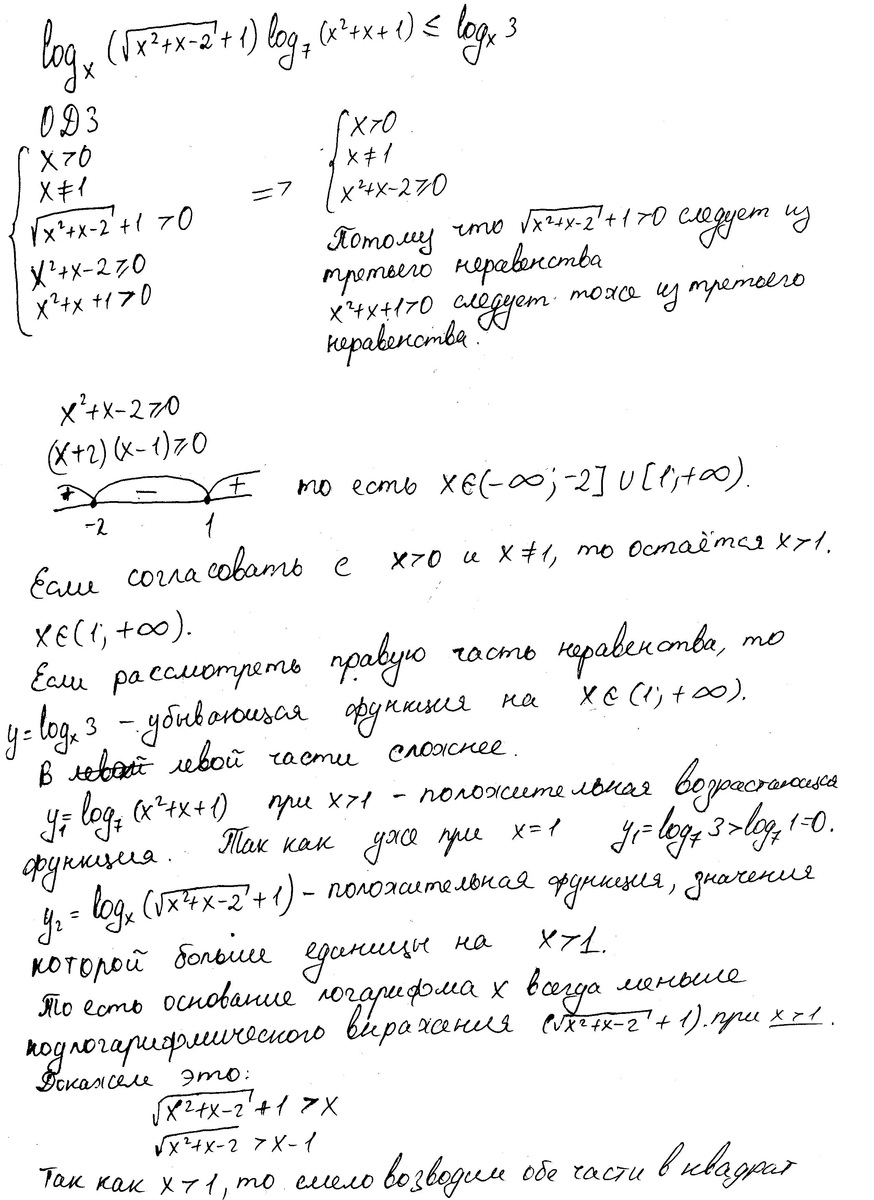 log_x (√(x²+x-2) + 1) log_7 (x²+x+1) ≤ log_x 3
ОДЗ
{ x>0
x≠1
√(x²+x-2) + 1 > 0
x²+x-2 ≥ 0
x²+x+1 > 0
=>
{ x>0
x≠1
x²+x-2 ≥ 0
Потому что √(x²+x-2) + 1 > 0 следует из
третьего неравенства
x²+x+1>0 следует тоже из третьего
неравенства.
x²+x-2 ≥ 0
(x+2)(x-1) ≥ 0
+ − +
-2 1
то есть x∈(-∞; -2] ∪ [1; +∞).
Если согласовать с x>0 и x≠1, то остаётся x>1.
x∈(1; +∞).
Если рассмотреть правую часть неравенства, то
y = log_x 3 – убывающая функция на x∈(1; +∞).
В левой части сложнее.
y₁ = log_7 (x²+x+1) при x>1 – положительная возрастающая
функция. Так как уже при x=1 y₁ = log_7 3 > log_7 1 = 0.
y₂ = log_x (√(x²+x-2) + 1) – положительная функция, значения
которой больше единицы на x>1.
То есть основание логарифма x всегда меньше
подлогарифмического выражения (√(x²+x-2) + 1). при x>1.
Докажем это:
√(x²+x-2) + 1 > x
√(x²+x-2) > x-1
Так как x>1, то смело возводим обе части в квадрат